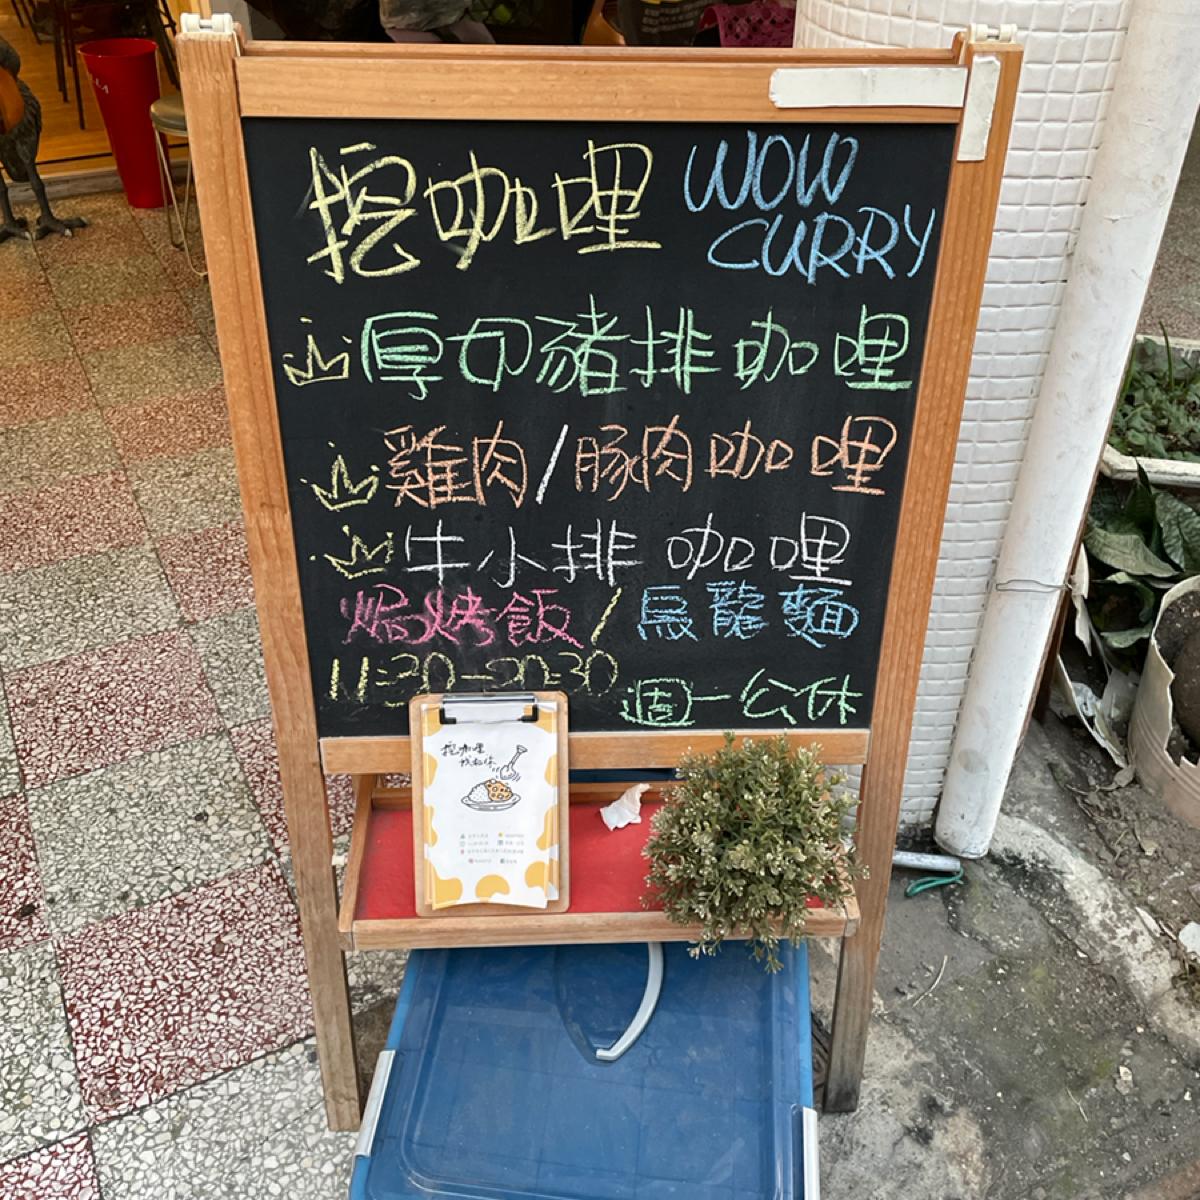 挖咖哩 WOW CURRY
厚切豬排咖哩
雞肉/豚肉咖哩
牛小排 咖哩
焗烤飯/烏龍麵
11:30-20:30
週一公休
挖咖哩